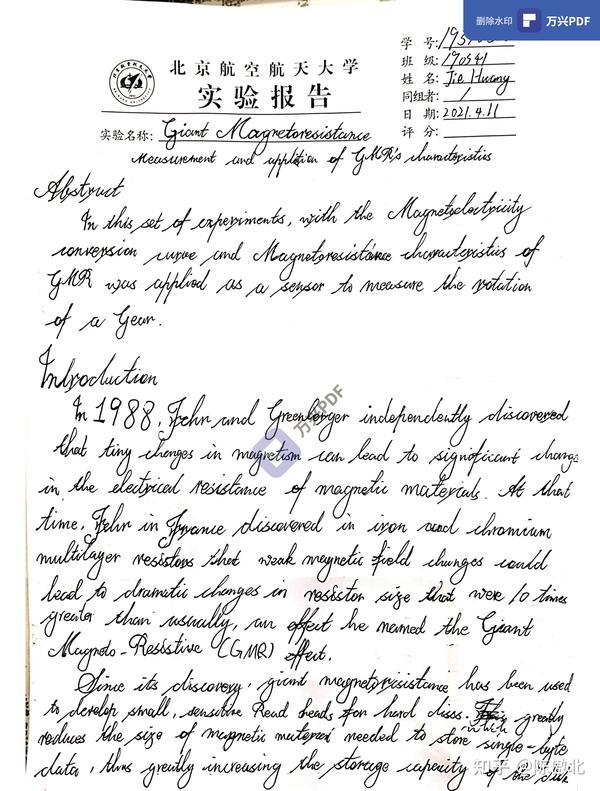 删除水印 万兴PDF
北京航空航天大学
实验报告
学 号:
班 级: 190541
姓 名: Jie Huang
同组者: /
日 期: 2021.4.11
评 分:
实验名称: Giant Magnetoresistance
Measurement and appliction of GMR's characteristics
Abstract
In this set of experiments, with the Magnetoelectricity
conversion curve and Magnetoresistance characteristics of
GMR was applied as a sensor to measure the rotation
of a Gear.
Introduction
In 1988, Fehr and Greenberger independently discovered
that tiny changes in magnetism can lead to significant change
in the electrical resistance of magnetic materials. At that
time, Fehr in France discovered in iron and chromium
multilayer resistors that weak magnetic field changes could
lead to dramatic changes in resistor size that were 10 times
greater than usually, an effect he named the Giant
Magneto-Resistive (GMR) effect.
Since its discovery, giant magnetoresistance has been used
to develop small, sensitive Read heads for hard discs. greatly
reduces the size of magnetic material needed to store single-byte
data, thus greatly increasing the storage capacity of the disk
万兴PDF
知乎